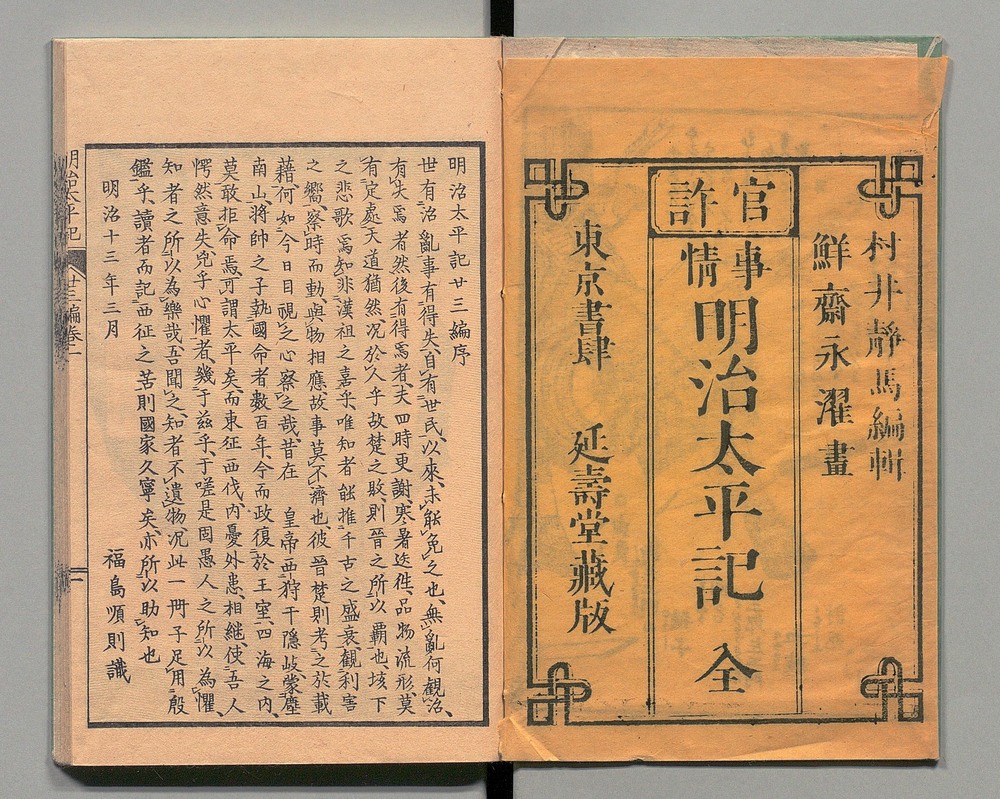 村井靜馬編輯
鮮齋永濯畫
官許
事情
明治太平記 全
東京書肆 延壽堂藏版
明治太平記廿三編序
世有治亂事有得失、自有世民、以來、未能免之也、無亂何觀治、
有失焉者、然後有得焉者、夫四時更謝、寒暑迭徃、品物流形、莫
有定處、天道猶然、况於人乎、故楚之敗、則晉之所以覇也、垓下
之悲歌、焉知非漢祖之嘉乎、唯知者能推千古之盛衰、觀利害
之嚮、察時而動、與物相應、故事莫不濟也、彼晉楚則考之於載
藉、何如今日目視之心察之哉、昔在 皇帝西狩干隱岐、蒙塵
南山、將帥之子執國命者數百年、今而政復於王室、四海之内、
莫敢拒命焉、可謂太平矣、而東征西伐、内憂外患、相継、使吾人
愕然意失、兇乎心懼者、幾于兹乎、于嗟是固愚人之所以為懼、
知者之所以為樂哉、吾聞之、知者不遺物、况此一冊子足用殷
鑑乎、讀者而記西征之苦則國家久寧矣、亦所以助知也
明治十三年三月
福島順則識
明治太平記 廿三編卷一